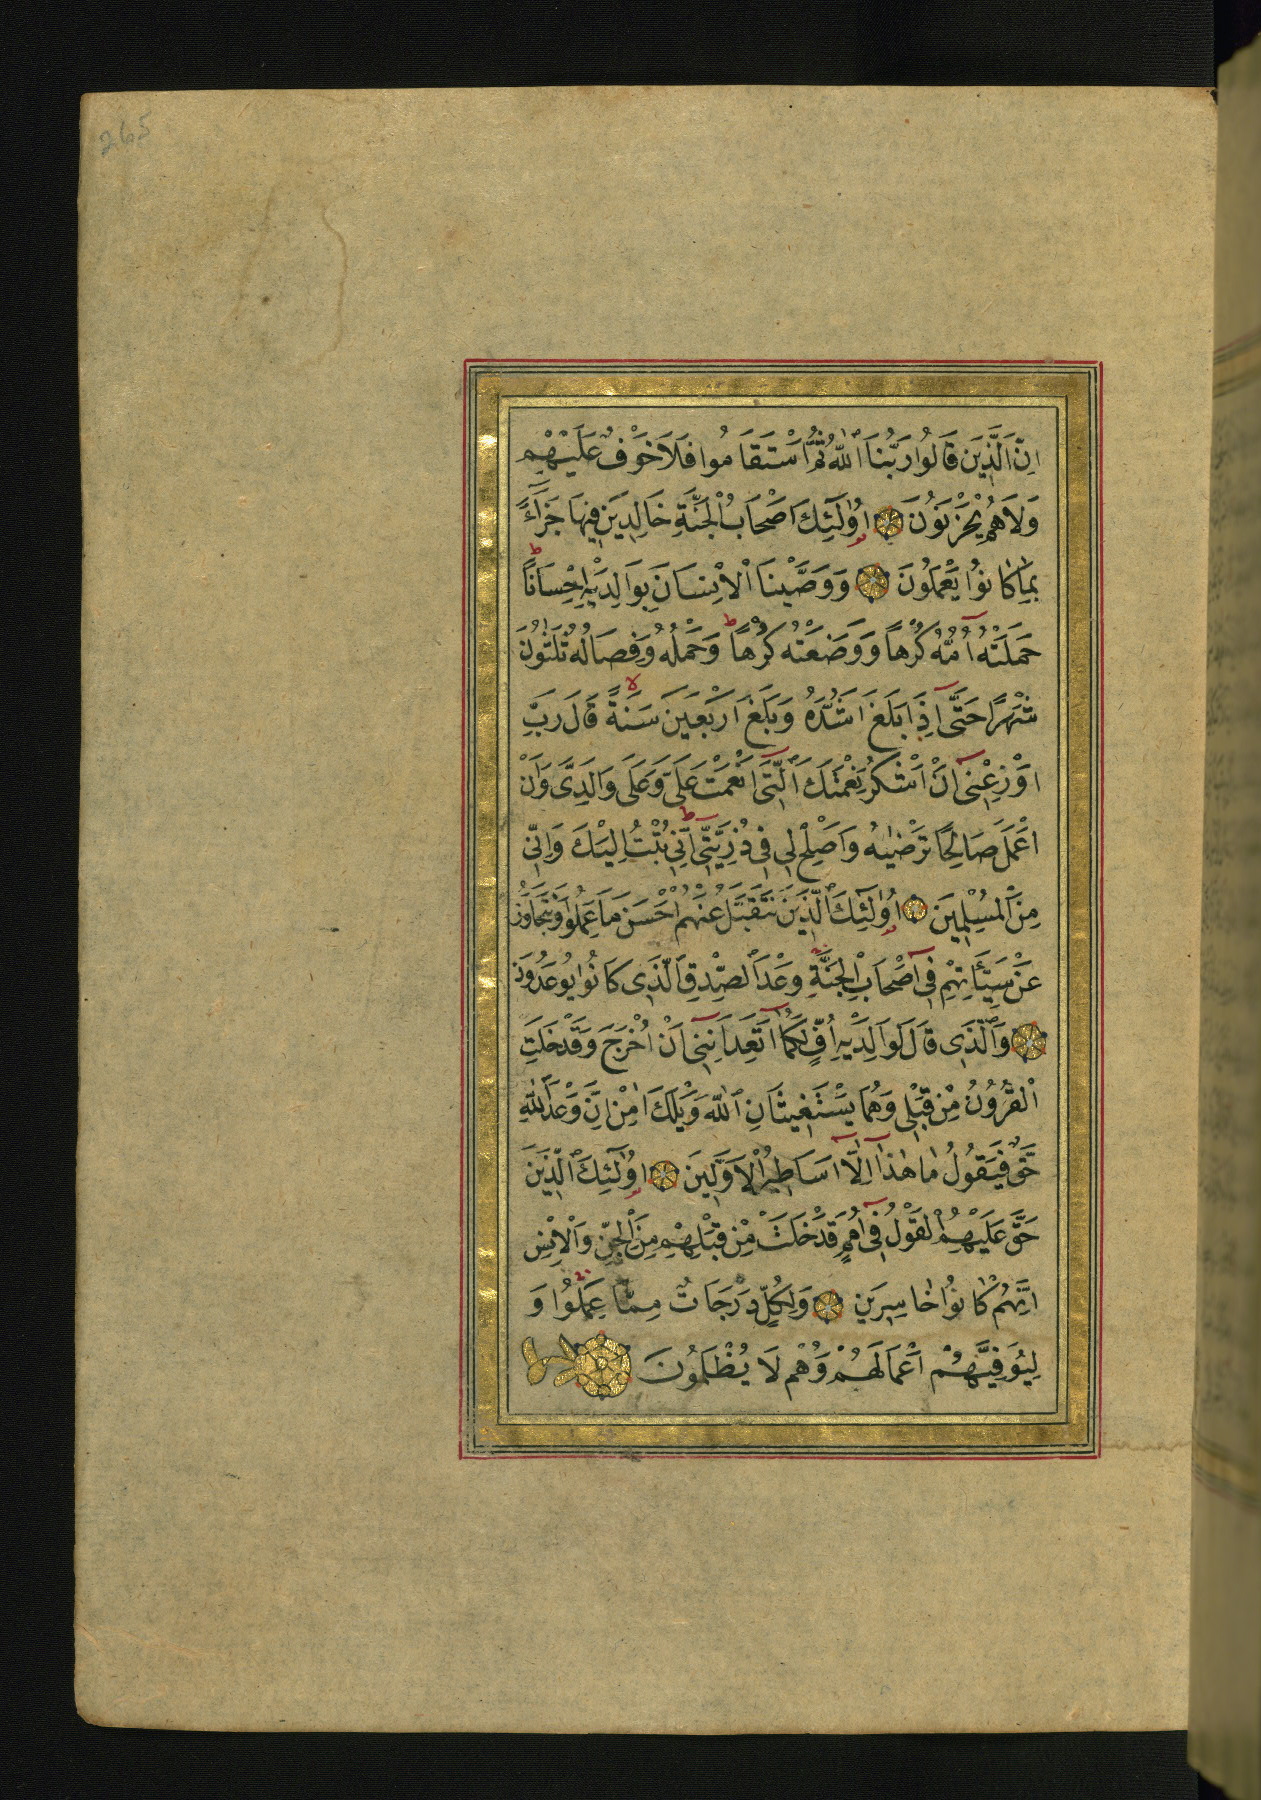 265
اِنَّ الَّذِينَ قَالُوا رَبُّنَا اللّٰهُ ثُمَّ اسْتَقَامُوا فَلَا خَوْفٌ عَلَيْهِمْ
وَلَا هُمْ يَحْزَنُونَ اُو۬لٰٓئِكَ اَصْحَابُ الْجَنَّةِ خَالِدِينَ فِيهَا جَزَٓاءً
بِمَا كَانُوا يَعْمَلُونَ وَوَصَّيْنَا الْاِنْسَانَ بِوَالِدَيْهِ اِحْسَانًا ط
حَمَلَتْهُ اُمُّهُ كُرْهًا وَوَضَعَتْهُ كُرْهًا ط وَحَمْلُهُ وَفِصَالُهُ ثَلٰثُونَ
شَهْرًا حَتّٰٓى اِذَا بَلَغَ اَشُدَّهُ وَبَلَغَ اَرْبَعِينَ سَنَةً لا قَالَ رَبِّ
اَوْزِعْنِٓى اَنْ اَشْكُرَ نِعْمَتَكَ الَّتِٓى اَنْعَمْتَ عَلَىَّ وَعَلٰى وَالِدَىَّ وَاَنْ
اَعْمَلَ صَالِحًا تَرْضٰيهُ وَاَصْلِحْ لِى فِى ذُرِّيَّتِٓى ط اِنِّى تُبْتُ اِلَيْكَ وَاِنِّى
مِنَ الْمُسْلِمِينَ اُو۬لٰٓئِكَ الَّذِينَ نَتَقَبَّلُ عَنْهُمْ اَحْسَنَ مَا عَمِلُوا وَنَتَجَاوَزُ
عَنْ سَيِّـَٔاتِهِمْ فِٓى اَصْحَابِ الْجَنَّةِ وَعْدَ الصِّدْقِ الَّذِى كَانُوا يُوعَدُونَ
وَالَّذِى قَالَ لِوَالِدَيْهِ اُفٍّ لَكُمَٓا اَتَعِدَانِنِٓى اَنْ اُخْرَجَ وَقَدْ خَلَتِ
الْقُرُونُ مِنْ قَبْلِى وَهُمَا يَسْتَغِيثَانِ اللّٰهَ وَيْلَكَ اٰمِنْ اِنَّ وَعْدَ اللّٰهِ
حَقٌّ فَيَقُولُ مَا هٰذَٓا اِلَّٓا اَسَاطِيرُ الْاَوَّلِينَ اُو۬لٰٓئِكَ الَّذِينَ
حَقَّ عَلَيْهِمُ الْقَوْلُ فِٓى اُمَمٍ قَدْ خَلَتْ مِنْ قَبْلِهِمْ مِنَ الْجِنِّ وَالْاِنْسِ
اِنَّهُمْ كَانُوا خَاسِرِينَ وَلِكُلٍّ دَرَجَاتٌ مِمَّا عَمِلُوا وَ
لِيُوَفِّيَهُمْ اَعْمَالَهُمْ وَهُمْ لَا يُظْلَمُونَ